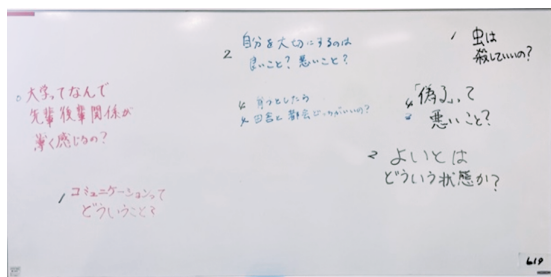 0 大学ってなんで
先輩後輩関係が
薄く感じるの?
1 コミュニケーションって
どういうこと?
2 自分を大切にするのは
よいこと?悪いこと?
4 育つとしたら
4 田舎と都会どっちがいいの?
1 虫は
殺していいの?
4 「偽る」って
悪いこと?
2 よいとは
どういう状態か?
619